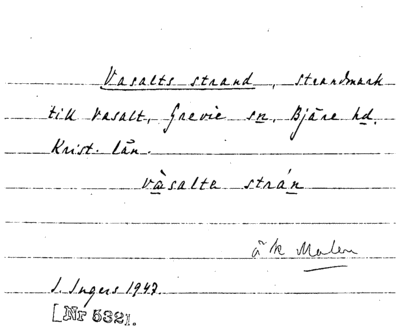 Vasalts strand, strandmark
till Vasalt, Grevie sn, Bjäre hd.
Krist. län.
vàsalta strán
å k Malen
I. Ingers 1947.
[Nr 532].